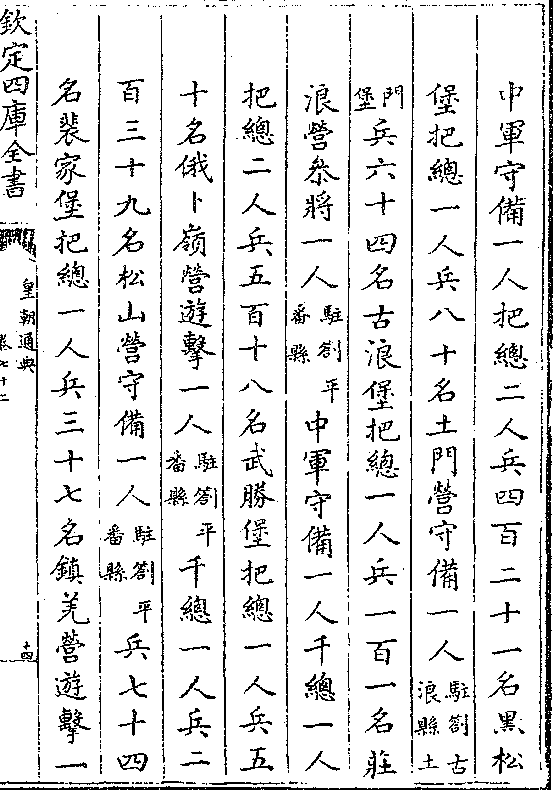 中軍守備一人把總二人兵四百二十一名黑松
堡把總一人兵八十名土門營守備一人駐劄古浪縣土
門堡兵六十四名古浪堡把總一人兵一百一名莊
浪營叅將一人駐劄平番縣中軍守備一人千總一人
把總二人兵五百十八名武勝堡把總一人兵五
十名俄卜嶺營遊擊一人駐劄平番縣千總一人兵二
百三十九名松山營守備一人駐劄平番縣兵七十四
名裴家堡把總一人兵三十七名鎮羌營遊擊一
欽定四庫全書
皇朝通典
卷七十二
十四